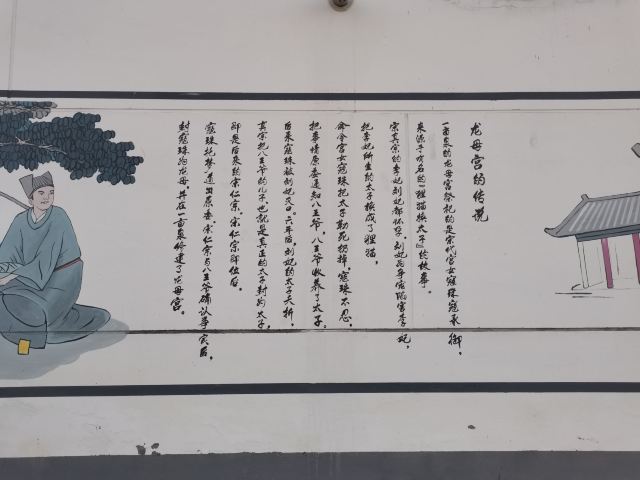 龙母宫的传说
一亩泉的龙母宫祭祀的是宋代宫女寇珠寇承御，
来源于有名的“狸猫换太子”的故事。
宋真宗的李妃刘妃都怀孕，刘妃为争宠陷害李妃，
把李妃所生的太子换成了狸猫，
命令宫女寇珠把太子勒死扔掉，寇珠不忍，
把事情原委通知八王爷，八王爷收养了太子。
后来寇珠被刘妃灭口。六年后，刘妃的太子夭折，
真宗把八王爷的儿子，也就是真正的太子封为太子，
即是后来的宋仁宗。宋仁宗即位后，
寇珠托梦道出原委，宋仁宗与八王爷确认事实后，
封寇珠为龙母，并在一亩泉修建了龙母宫。